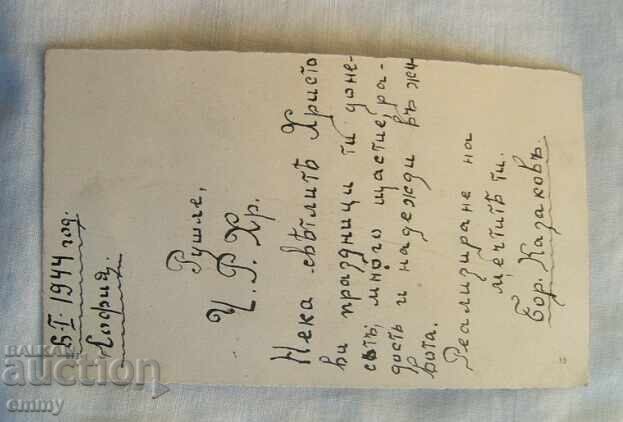 6.I.1944 год.
София.
Рушле,
Ч. Р. Хр.
Нека свѣтлитѣ Христо
ви праздници ти доне-
сатъ, много щастие, ра-
дость и надежди въ жи
вота.
Реализиране на
мечтитѣ ти.
Бор. Казаковъ.
БАЛКАН
auction
emmy